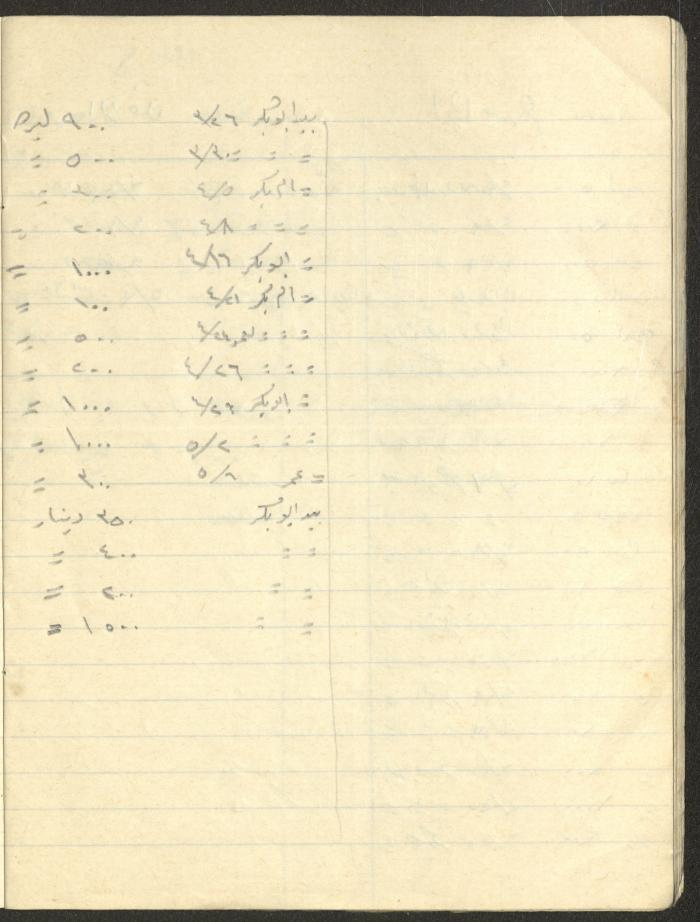 بيد ابو بكر ٣/٢٦ ٩٠٠ ليرة
= = = ٣/٣٠ ٥٠٠ =
= ام بكر ٤/٥ ٣٠٠ =
= = = ٤/٨ ٢٠٠ =
= ابو بكر ٤/١٦ ١٠٠٠ =
= ام بكر ٤/٢١ ١٠٠ =
= = = ٥٠٠ =
= = = ٤/٢٦ ٢٠٠ =
= ابو بكر ١٠٠٠ =
= = = ٥/٢ ١٠٠٠ =
= عمر ٥/٦ ٣٠٠ =
بيد ابو بكر ٣٥٠ دينار
= = ٤٠٠ =
= = ٢٠٠ =
= = ١٥٠٠ =